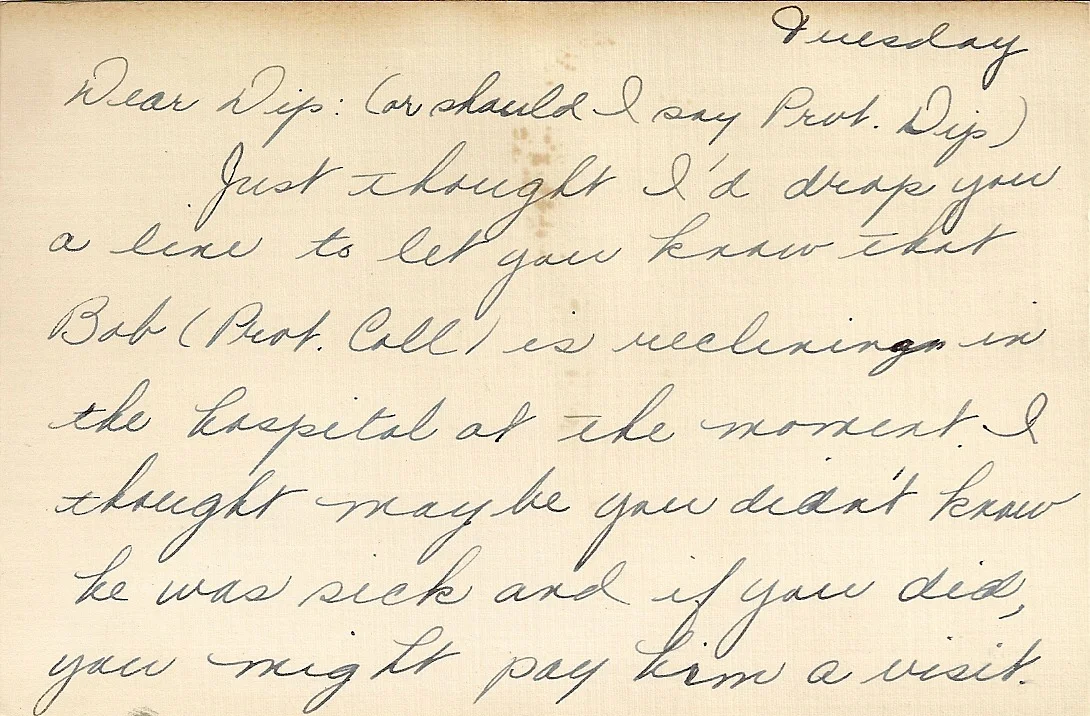 Tuesday
Dear Dip: (or should I say Prot. Dip)
Just thought I'd drop you
a line to let you know that
Bob (Prot. Coll) is reclining in
the hospital at the moment. I
thought maybe you didn't know
he was sick and if you did,
you might pay him a visit.